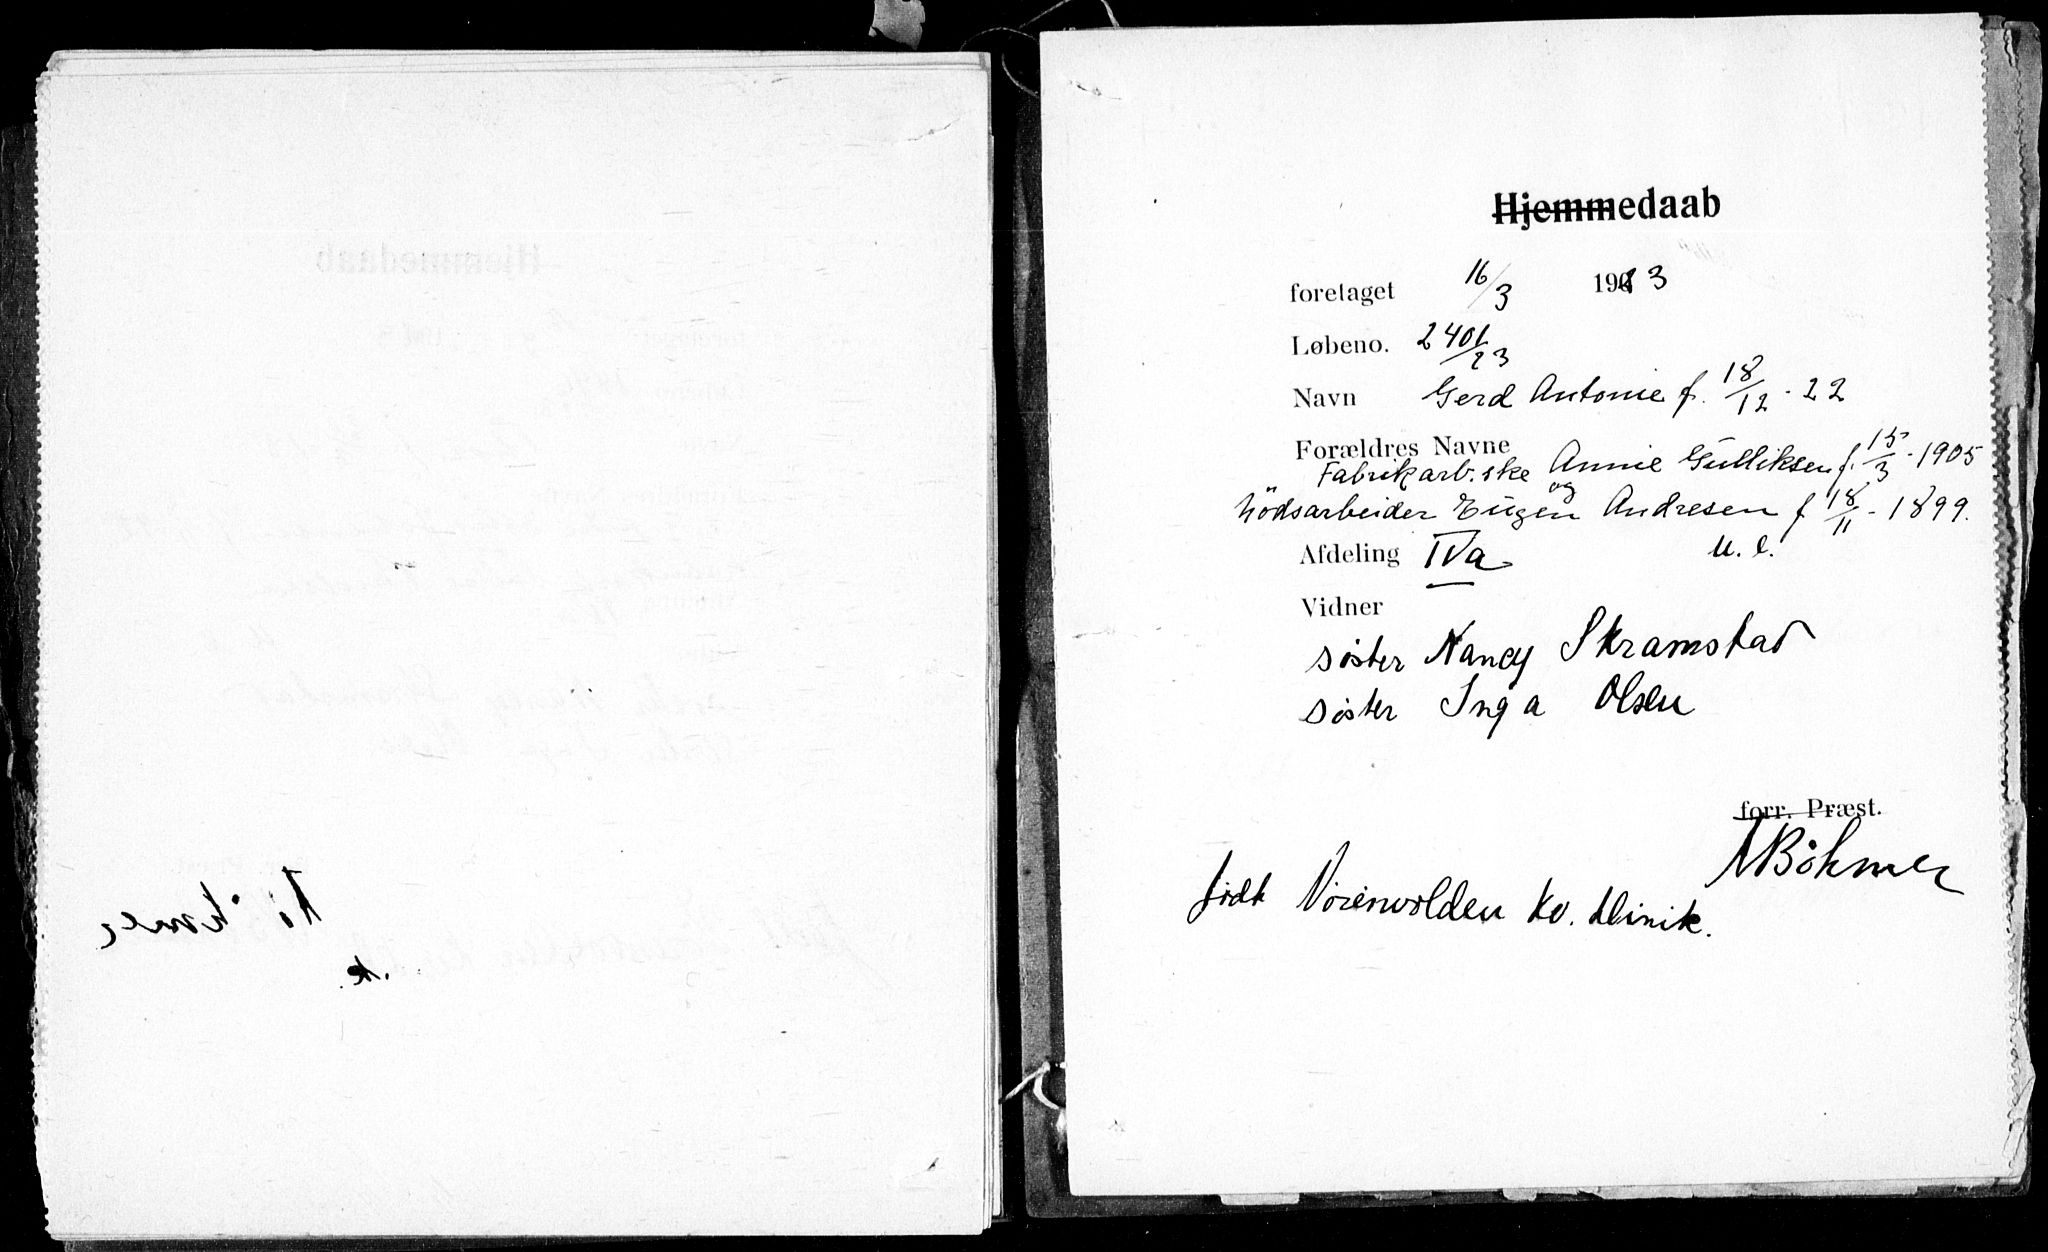 Hjemmedaab
foretaget 16/3 1923
Løbeno. 2401/23
Navn Gerd Antonie f. 18/12 - 22
Forældres Navne
Fabrikarb.ske Annie Gulliksen f. 15/3 - 1905
og
Lödsarbeider Eugen Andresen f 18/11 - 1899.
Afdeling IVa U. e.
Vidner
søster Nancy Skramstad
søster Inga Olsen
forr. Præst.
Böhmer
født Vörenvolden Kv. klinik.